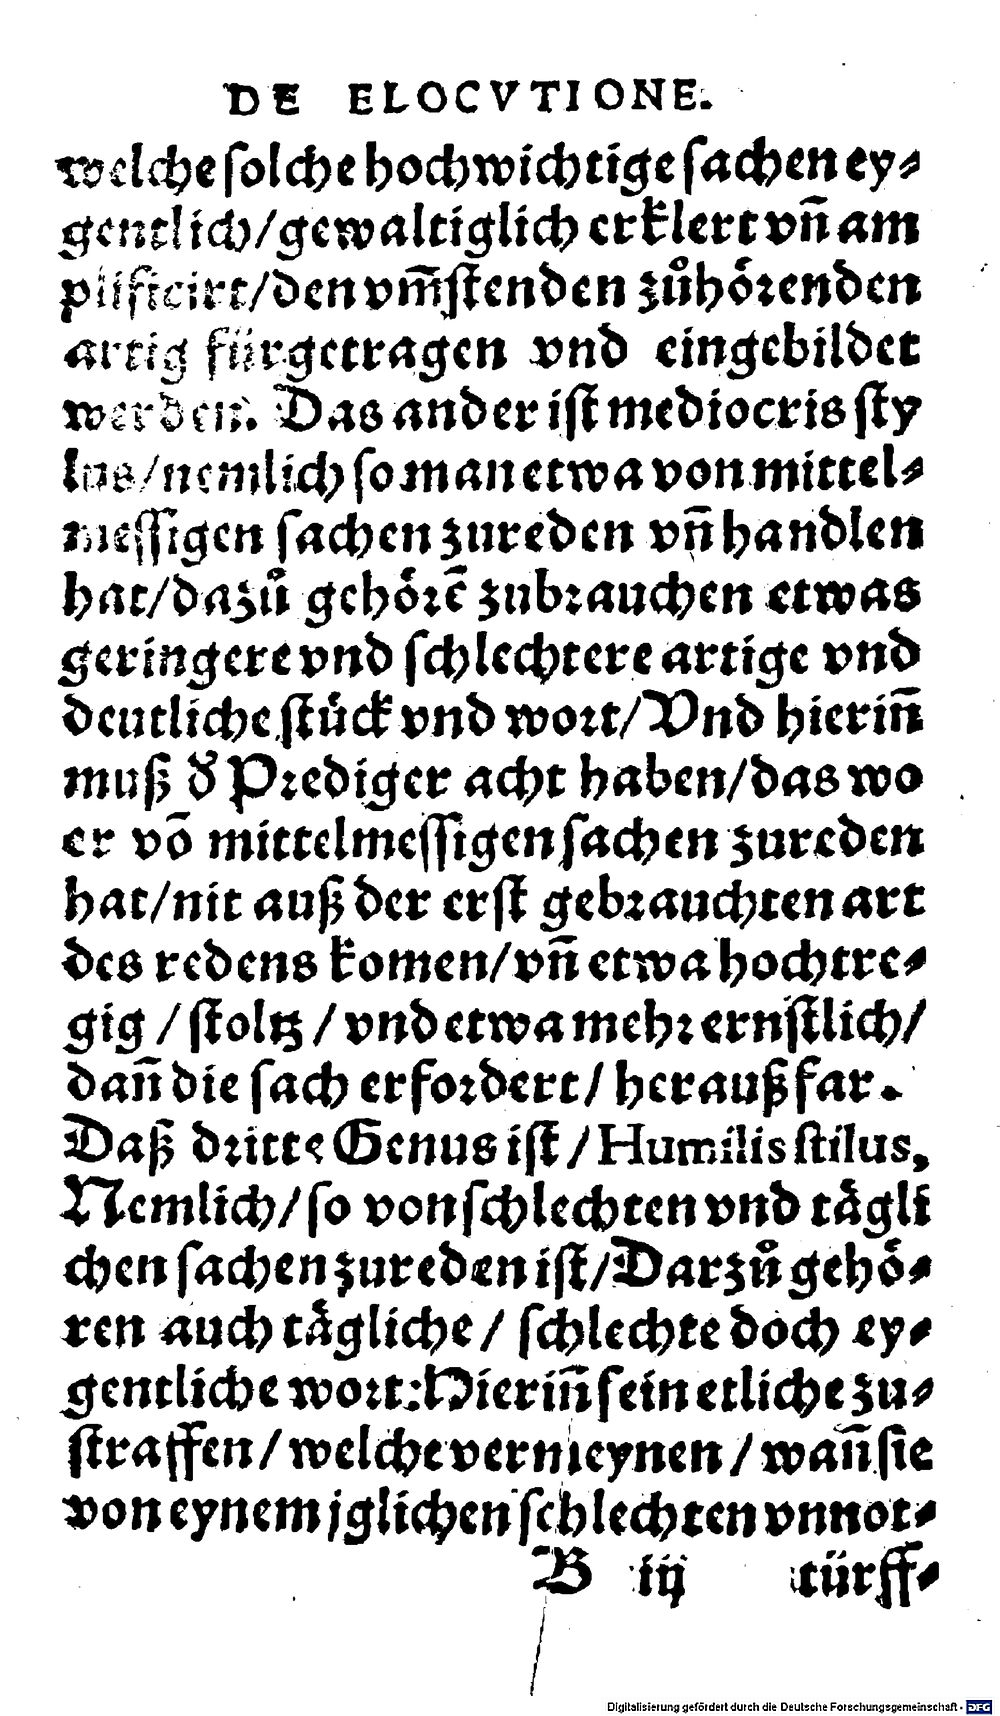 DE ELOCVTIONE.
welche ſolche hochwichtige ſachen ey⸗
gentlich/gewaltiglich erklert vñ am
plificirt/den vm̃ſtenden zůhoͤꝛenden
artig fürgetragen vnd eingebildet
werden. Das ander iſt mediocris ſty
lus/nemlich ſo man etwa von mittel⸗
meſſigen ſachen zureden vñ handlen
hat/dazů gehoͤꝛē zubꝛauchen etwas
geringere vnd ſchlechtere artige vnd
deutliche ſtück vnd woꝛt/Vnd hieriñ
muß d̓ Pꝛediger acht haben/das wo
er vō mittelmeſſigen ſachen zureden
hat/nit auß der erſt gebꝛauchten art
des redens komen/vñ etwa hochtre⸗
gig/ſtoltz/vnd etwa mehꝛ ernſtlich/
dañ die ſach erfoꝛdert/herauß far.
Daß dꝛitte Genus iſt/Humilis ſtilus,
Nemlich/ſo von ſchlechten vnd taͤgli
chen ſachen zureden iſt/Darzů gehoͤ⸗
ren auch taͤgliche/ſchlechte doch ey⸗
gentliche woꝛt:Hieriñ ſein etliche zu⸗
ſtraffen/welche vermeynen/wañ ſie
von eynem jglichen ſchlechten vnnot⸗
B iij türff⸗
Digitalisierung gefördert durch die Deutsche Forschungsgemeinschaft - DFG